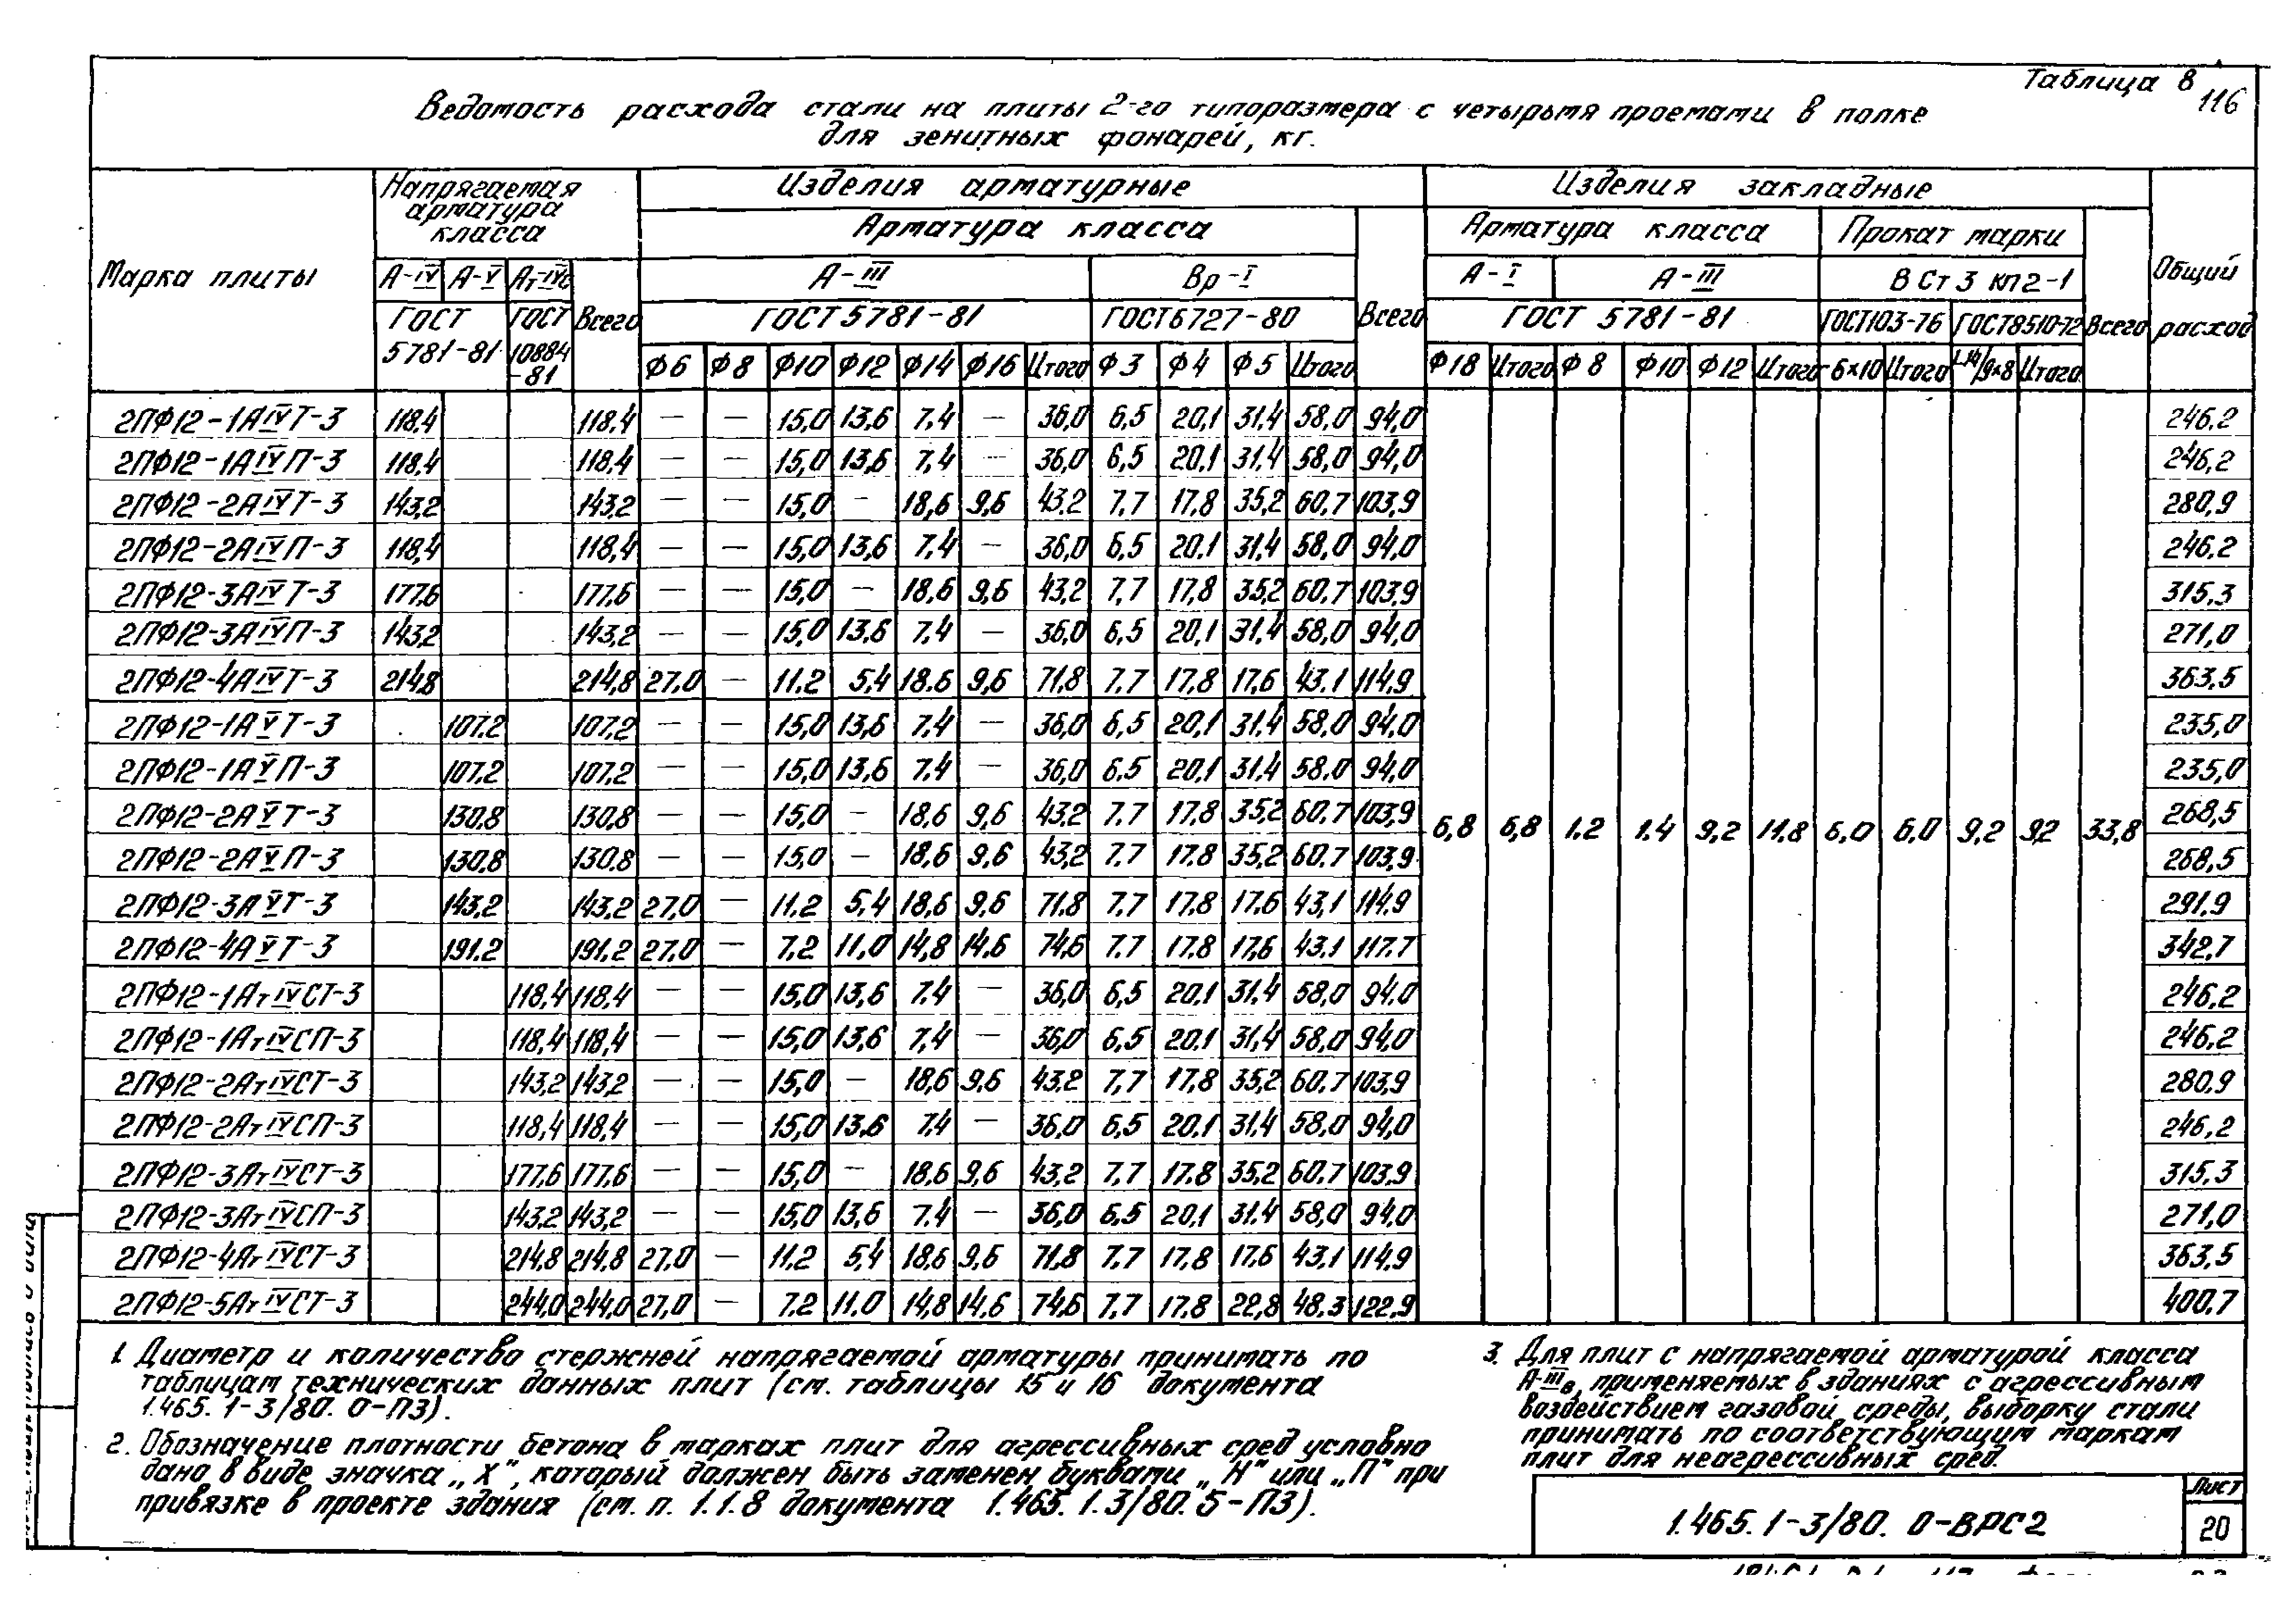 Таблица 8
116
Ведомость расхода стали на плиты 2-го типоразмера с четырьмя проемами в полке
для зенитных фонарей, кг.
Марка плиты
Напрягаемая арматура класса
Изделия арматурные
Изделия закладные
Общий расход
Арматура класса
Всего
Арматура класса
Прокат марки
Всего
А-IV А-V Ат-IVс Всего
А-III
Вр-I
А-I
А-III
В Ст 3 кп2-1
ГОСТ 5781-81
ГОСТ 10884-81
ГОСТ 5781-81
ГОСТ 6727-80
ГОСТ 5781-81
ГОСТ103-76
ГОСТ8510-72
Ф6 Ф8 Ф10 Ф12 Ф14 Ф16 Итого Ф3 Ф4 Ф5 Итого Ф18 Итого Ф8 Ф10 Ф12 Итого -6×10 Итого Итого
2ПФ12-1АIVТ-3 118,4 118,4 — — 15,0 13,6 7,4 — 36,0 6,5 20,1 31,4 58,0 94,0 246,2
2ПФ12-1АIVП-3 118,4 118,4 — — 15,0 13,6 7,4 — 36,0 6,5 20,1 31,4 58,0 94,0 246,2
2ПФ12-2АIVТ-3 143,2 143,2 — — 15,0 — 18,6 9,6 43,2 7,7 17,8 35,2 60,7 103,9 280,9
2ПФ12-2АIVП-3 118,4 118,4 — — 15,0 13,6 7,4 — 36,0 6,5 20,1 31,4 58,0 94,0 246,2
2ПФ12-3АIVТ-3 177,6 177,6 — — 15,0 — 18,6 9,6 43,2 7,7 17,8 35,2 60,7 103,9 315,3
2ПФ12-3АIVП-3 143,2 143,2 — — 15,0 13,6 7,4 — 36,0 6,5 20,1 31,4 58,0 94,0 271,0
2ПФ12-4АIVТ-3 214,8 214,8 27,0 — 11,2 5,4 18,6 9,6 71,8 7,7 17,8 17,6 43,1 114,9 363,5
2ПФ12-1АVТ-3 107,2 107,2 — — 15,0 13,6 7,4 — 36,0 6,5 20,1 31,4 58,0 94,0 235,0
2ПФ12-1АVП-3 107,2 107,2 — — 15,0 13,6 7,4 — 36,0 6,5 20,1 31,4 58,0 94,0 235,0
2ПФ12-2АVТ-3 130,8 130,8 — — 15,0 — 18,6 9,6 43,2 7,7 17,8 35,2 60,7 103,9 268,5
6,8 6,8 1,2 1,4 9,2 11,8 6,0 6,0 9,2 9,2 33,8
2ПФ12-2АVП-3 130,8 130,8 — — 15,0 — 18,6 9,6 43,2 7,7 17,8 35,2 60,7 103,9 268,5
2ПФ12-3АVТ-3 143,2 143,2 27,0 — 11,2 5,4 18,6 9,6 71,8 7,7 17,8 17,6 43,1 114,9 291,9
2ПФ12-4АVТ-3 191,2 191,2 27,0 — 7,2 11,0 14,8 14,6 74,6 7,7 17,8 17,6 43,1 117,7 342,7
2ПФ12-1АтIVСТ-3 118,4 118,4 — — 15,0 13,6 7,4 — 36,0 6,5 20,1 31,4 58,0 94,0 246,2
2ПФ12-1АтIVСП-3 118,4 118,4 — — 15,0 13,6 7,4 — 36,0 6,5 20,1 31,4 58,0 94,0 246,2
2ПФ12-2АтIVСТ-3 143,2 143,2 — — 15,0 — 18,6 9,6 43,2 7,7 17,8 35,2 60,7 103,9 280,9
2ПФ12-2АтIVСП-3 118,4 118,4 — — 15,0 13,6 7,4 — 36,0 6,5 20,1 31,4 58,0 94,0 246,2
2ПФ12-3АтIVСТ-3 177,6 177,6 — — 15,0 — 18,6 9,6 43,2 7,7 17,8 35,2 60,7 103,9 315,3
2ПФ12-3АтIVСП-3 143,2 143,2 — — 15,0 13,6 7,4 — 36,0 6,5 20,1 31,4 58,0 94,0 271,0
2ПФ12-4АтIVСТ-3 214,8 214,8 27,0 — 11,2 5,4 18,6 9,6 71,8 7,7 17,8 17,6 43,1 114,9 363,5
2ПФ12-5АтIVСТ-3 244,0 244,0 27,0 — 7,2 11,0 14,8 14,6 74,6 7,7 17,8 22,8 48,3 122,9 400,7
1. Диаметр и количество стержней напрягаемой арматуры принимать по
таблицам технических данных плит (см. таблицы 15 и 16 документа
1.465.1-3/80.0-ПЗ).
2. Обозначение плотности бетона в марках плит для агрессивных сред условно
дано в виде значка „Х", который должен быть заменен буквами „Н" или „П" при
привязке в проекте здания (см. п. 1.1.8 документа 1.465.1.3/80.5-ПЗ).
3. Для плит с напрягаемой арматурой класса
А-IIIв, применяемых в зданиях с агрессивным
воздействием газовой среды, выборку стали
принимать по соответствующим маркам
плит для неагрессивных сред.
1.465.1-3/80.0-ВРС2
Лист
20